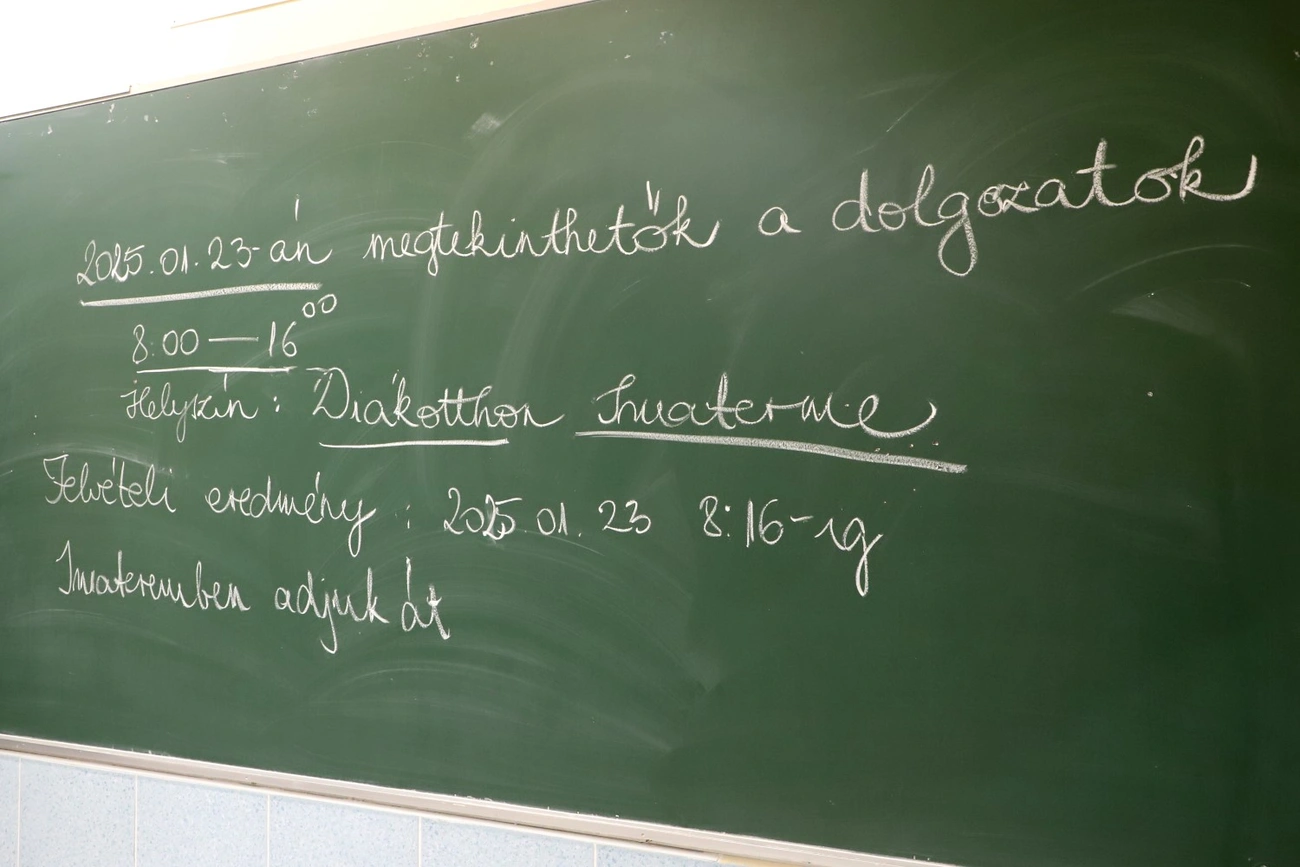 2025.01.23-án megtekinthetők a dolgozatok
8:00 — 16⁰⁰
Helyszín : Diákotthon Imaterme
Felvételi eredmény : 2025.01.23 8:16-ig
Imateremben adjuk át